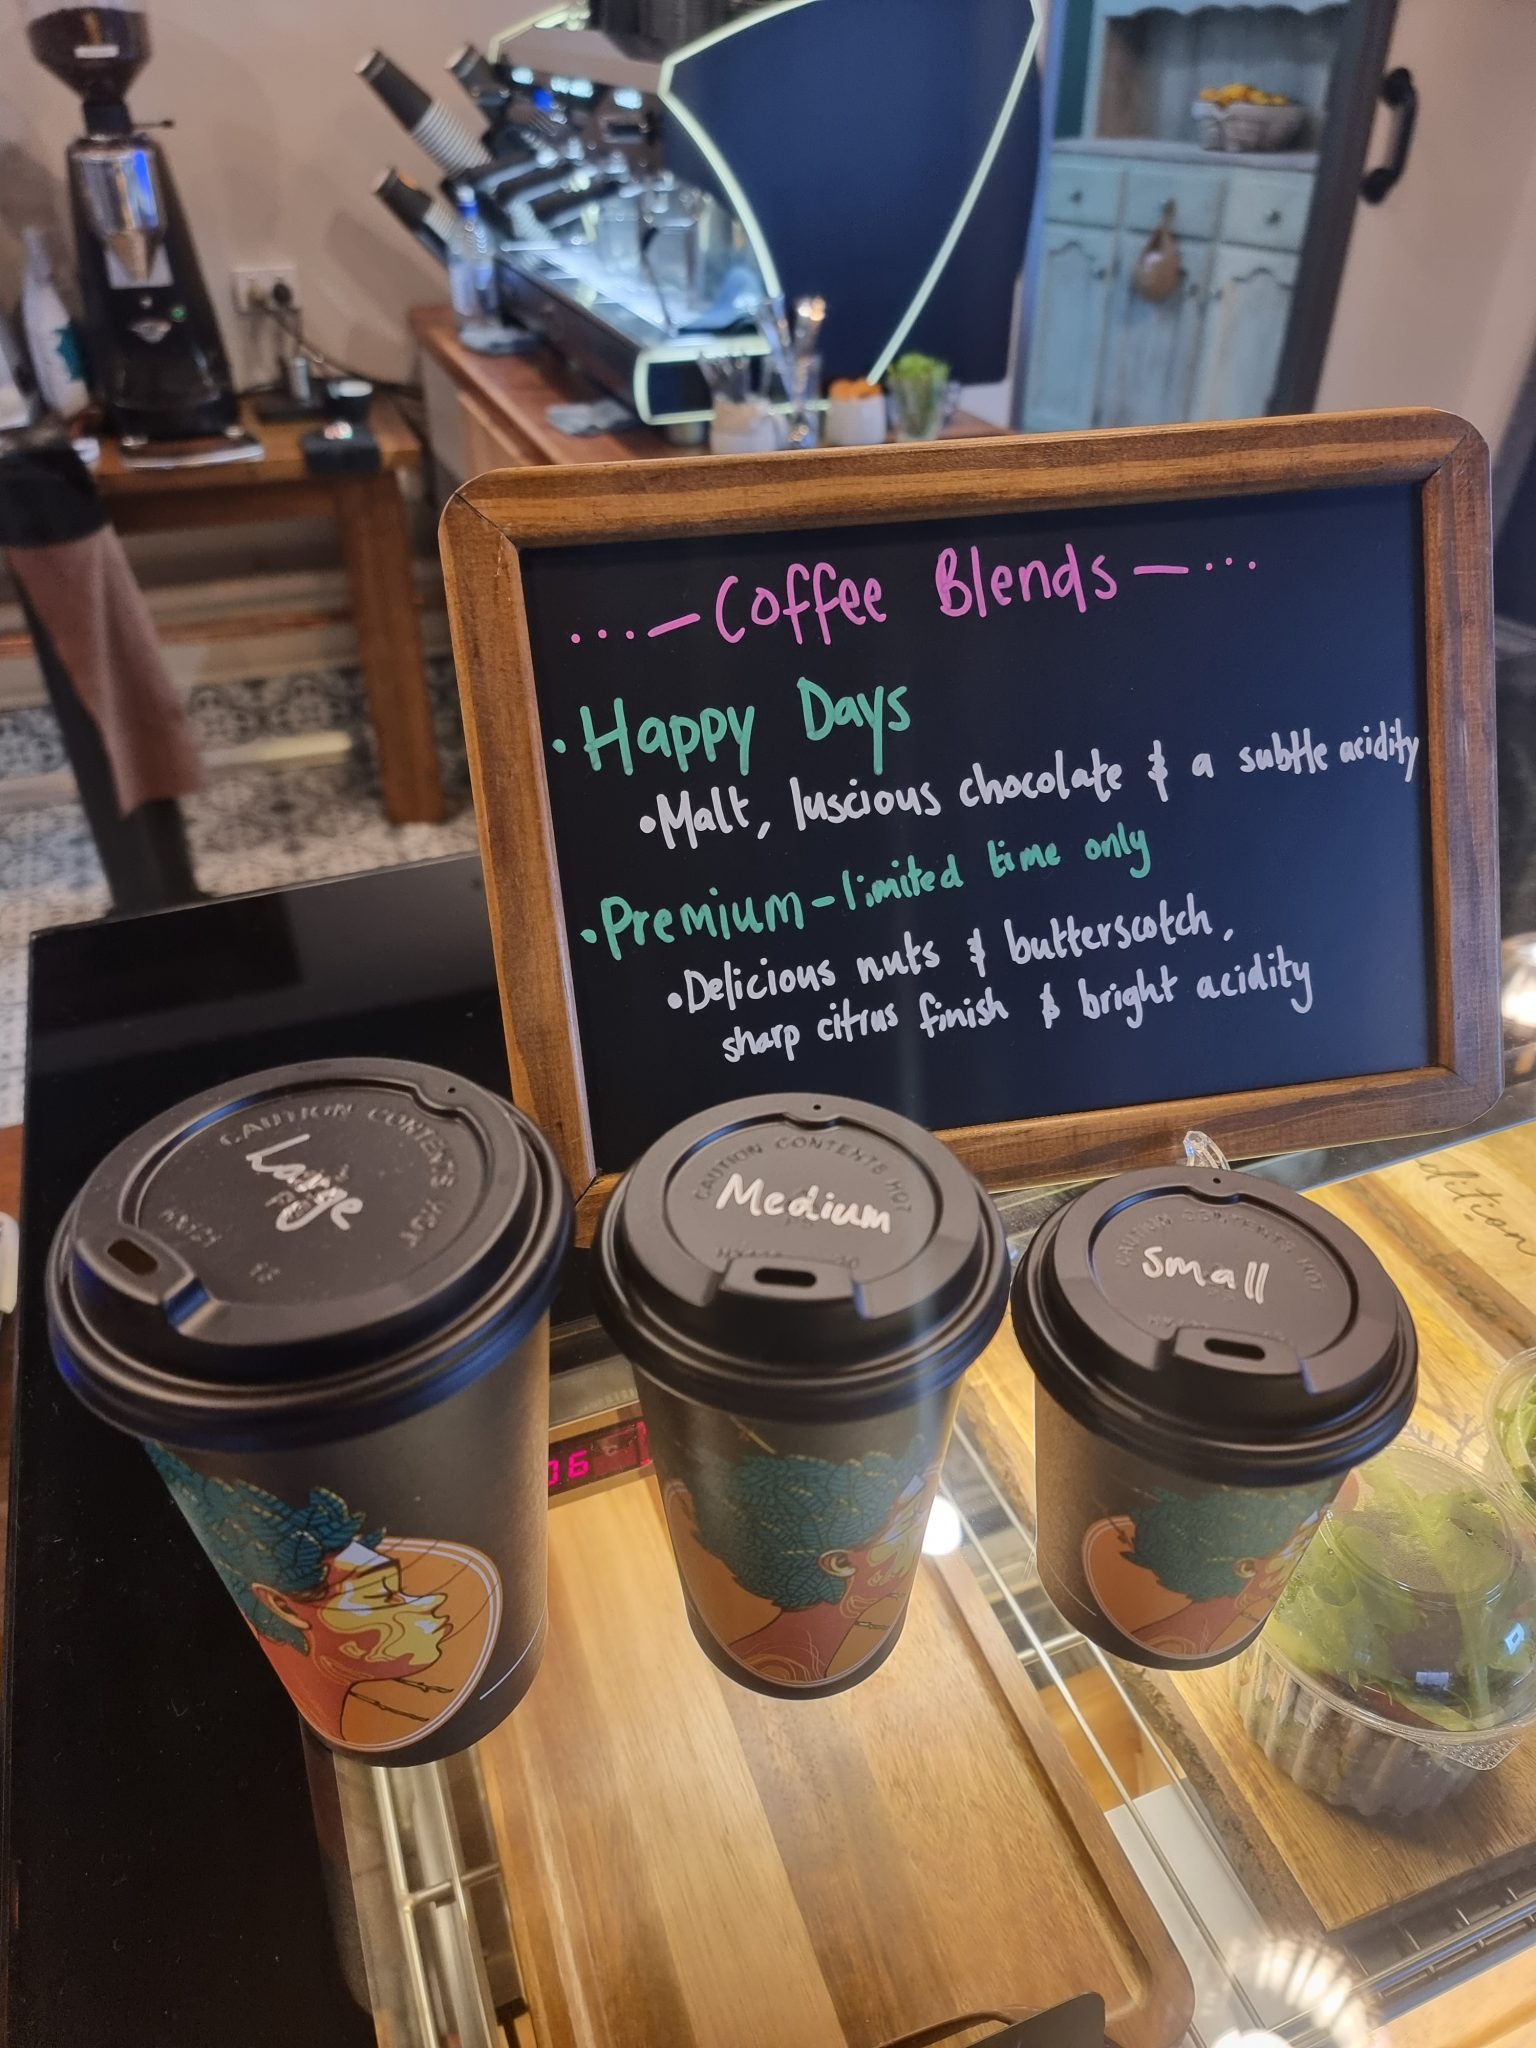 ...—Coffee Blends—...
• Happy Days
• Malt, luscious chocolate & a subtle acidity
• Premium - limited time only
• Delicious nuts & butterscotch,
sharp citrus finish & bright acidity
CAUTION CONTENTS HOT
Large
CAUTION CONTENTS HOT
Medium
CAUTION CONTENTS HOT
small
06